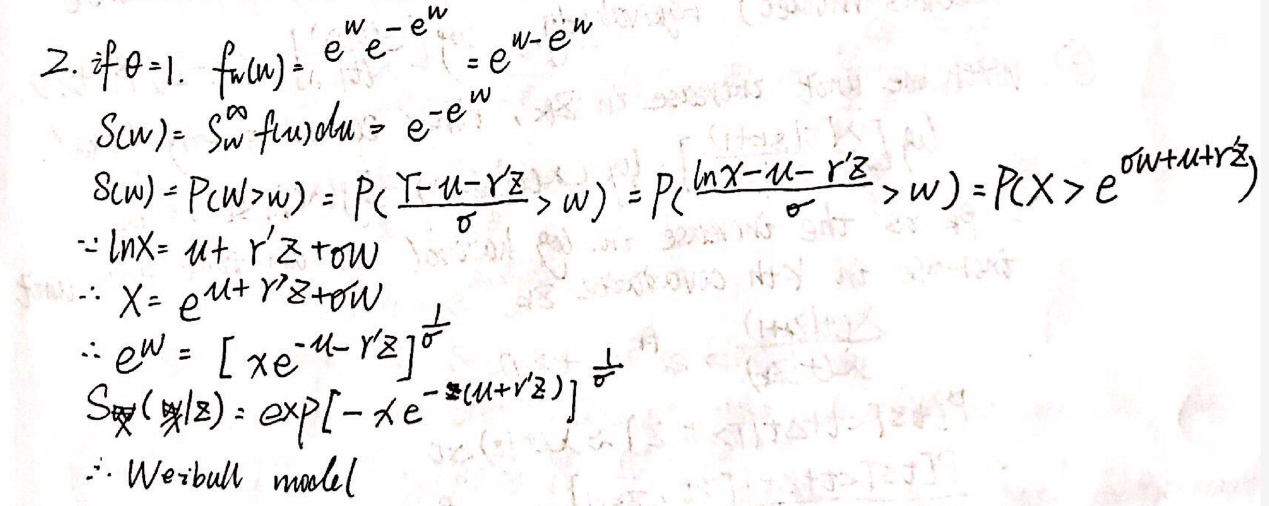 2. if θ=1. f_w(w) = e^w e^{-e^w} = e^{w-e^w}
S(w) = ∫_w^∞ f(u)du = e^{-e^w}
S(w) = P(W>w) = P(\frac{Y-u-r'z}{σ} > w) = P(\frac{lnx-u-r'z}{σ} > w) = P(X > e^{σw+u+r'z})
∵ lnX = u + r'z + σw
∴ X = e^{u+r'z+σw}
∴ e^w = [xe^{-u-r'z}]^{\frac{1}{σ}}
S_X(x|z) = exp[-xe^{-(u+r'z)}]^{\frac{1}{σ}}
∴ Weibull model